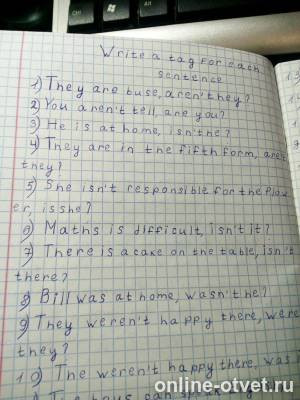 Write a tag for each
sentence
1) They are buse, aren't they?
2) You aren't tell, are you?
3) He is at home, isn't he?
4) They are in the fifth form, aren't
they?
5) She isn't responsible for the flow
er, is she?
6) Maths is difficult, isn't it?
7) There is a cake on the table, isn't
there?
8) Bill was at home, wasn't he?
9) They weren't happy there, were
they?
10) The weren't happy there, was
online-otvet.ru